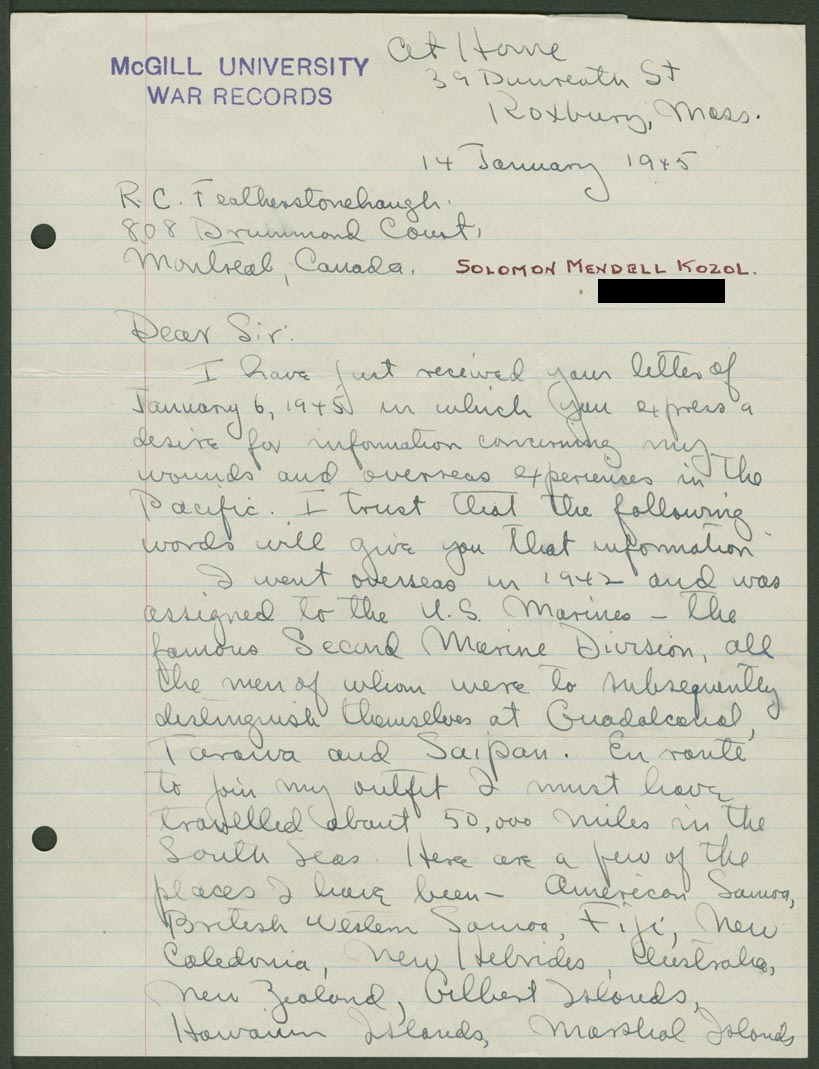 McGILL UNIVERSITY
WAR RECORDS
At Home
39 Dunreath St
Roxbury, Mass.
14 January 1945
R. C. Featherstonehaugh.
808 Drummond Court,
Montreal, Canada.
SOLOMON MENDELL KOZOL.
Dear Sir:
I have just received your letter of
January 6, 1945 in which you express a
desire for information concerning my
wounds and overseas experiences in the
Pacific. I trust that the following
words will give you that information
I went overseas in 1942 and was
assigned to the U.S. Marines – the
famous Second Marine Division, all
the men of whom were to subsequently
distinguish themselves at Guadalcanal,
Tarawa and Saipan. En route
to join my outfit I must have
travelled about 50,000 miles in the
South Seas. Here are a few of the
places I have been – American Samoa,
British Western Samoa, Fiji, New
Caledonia, New Hebrides, Australia,
New Zealand, Gilbert Islands,
Hawaiian Islands, Marshal Islands